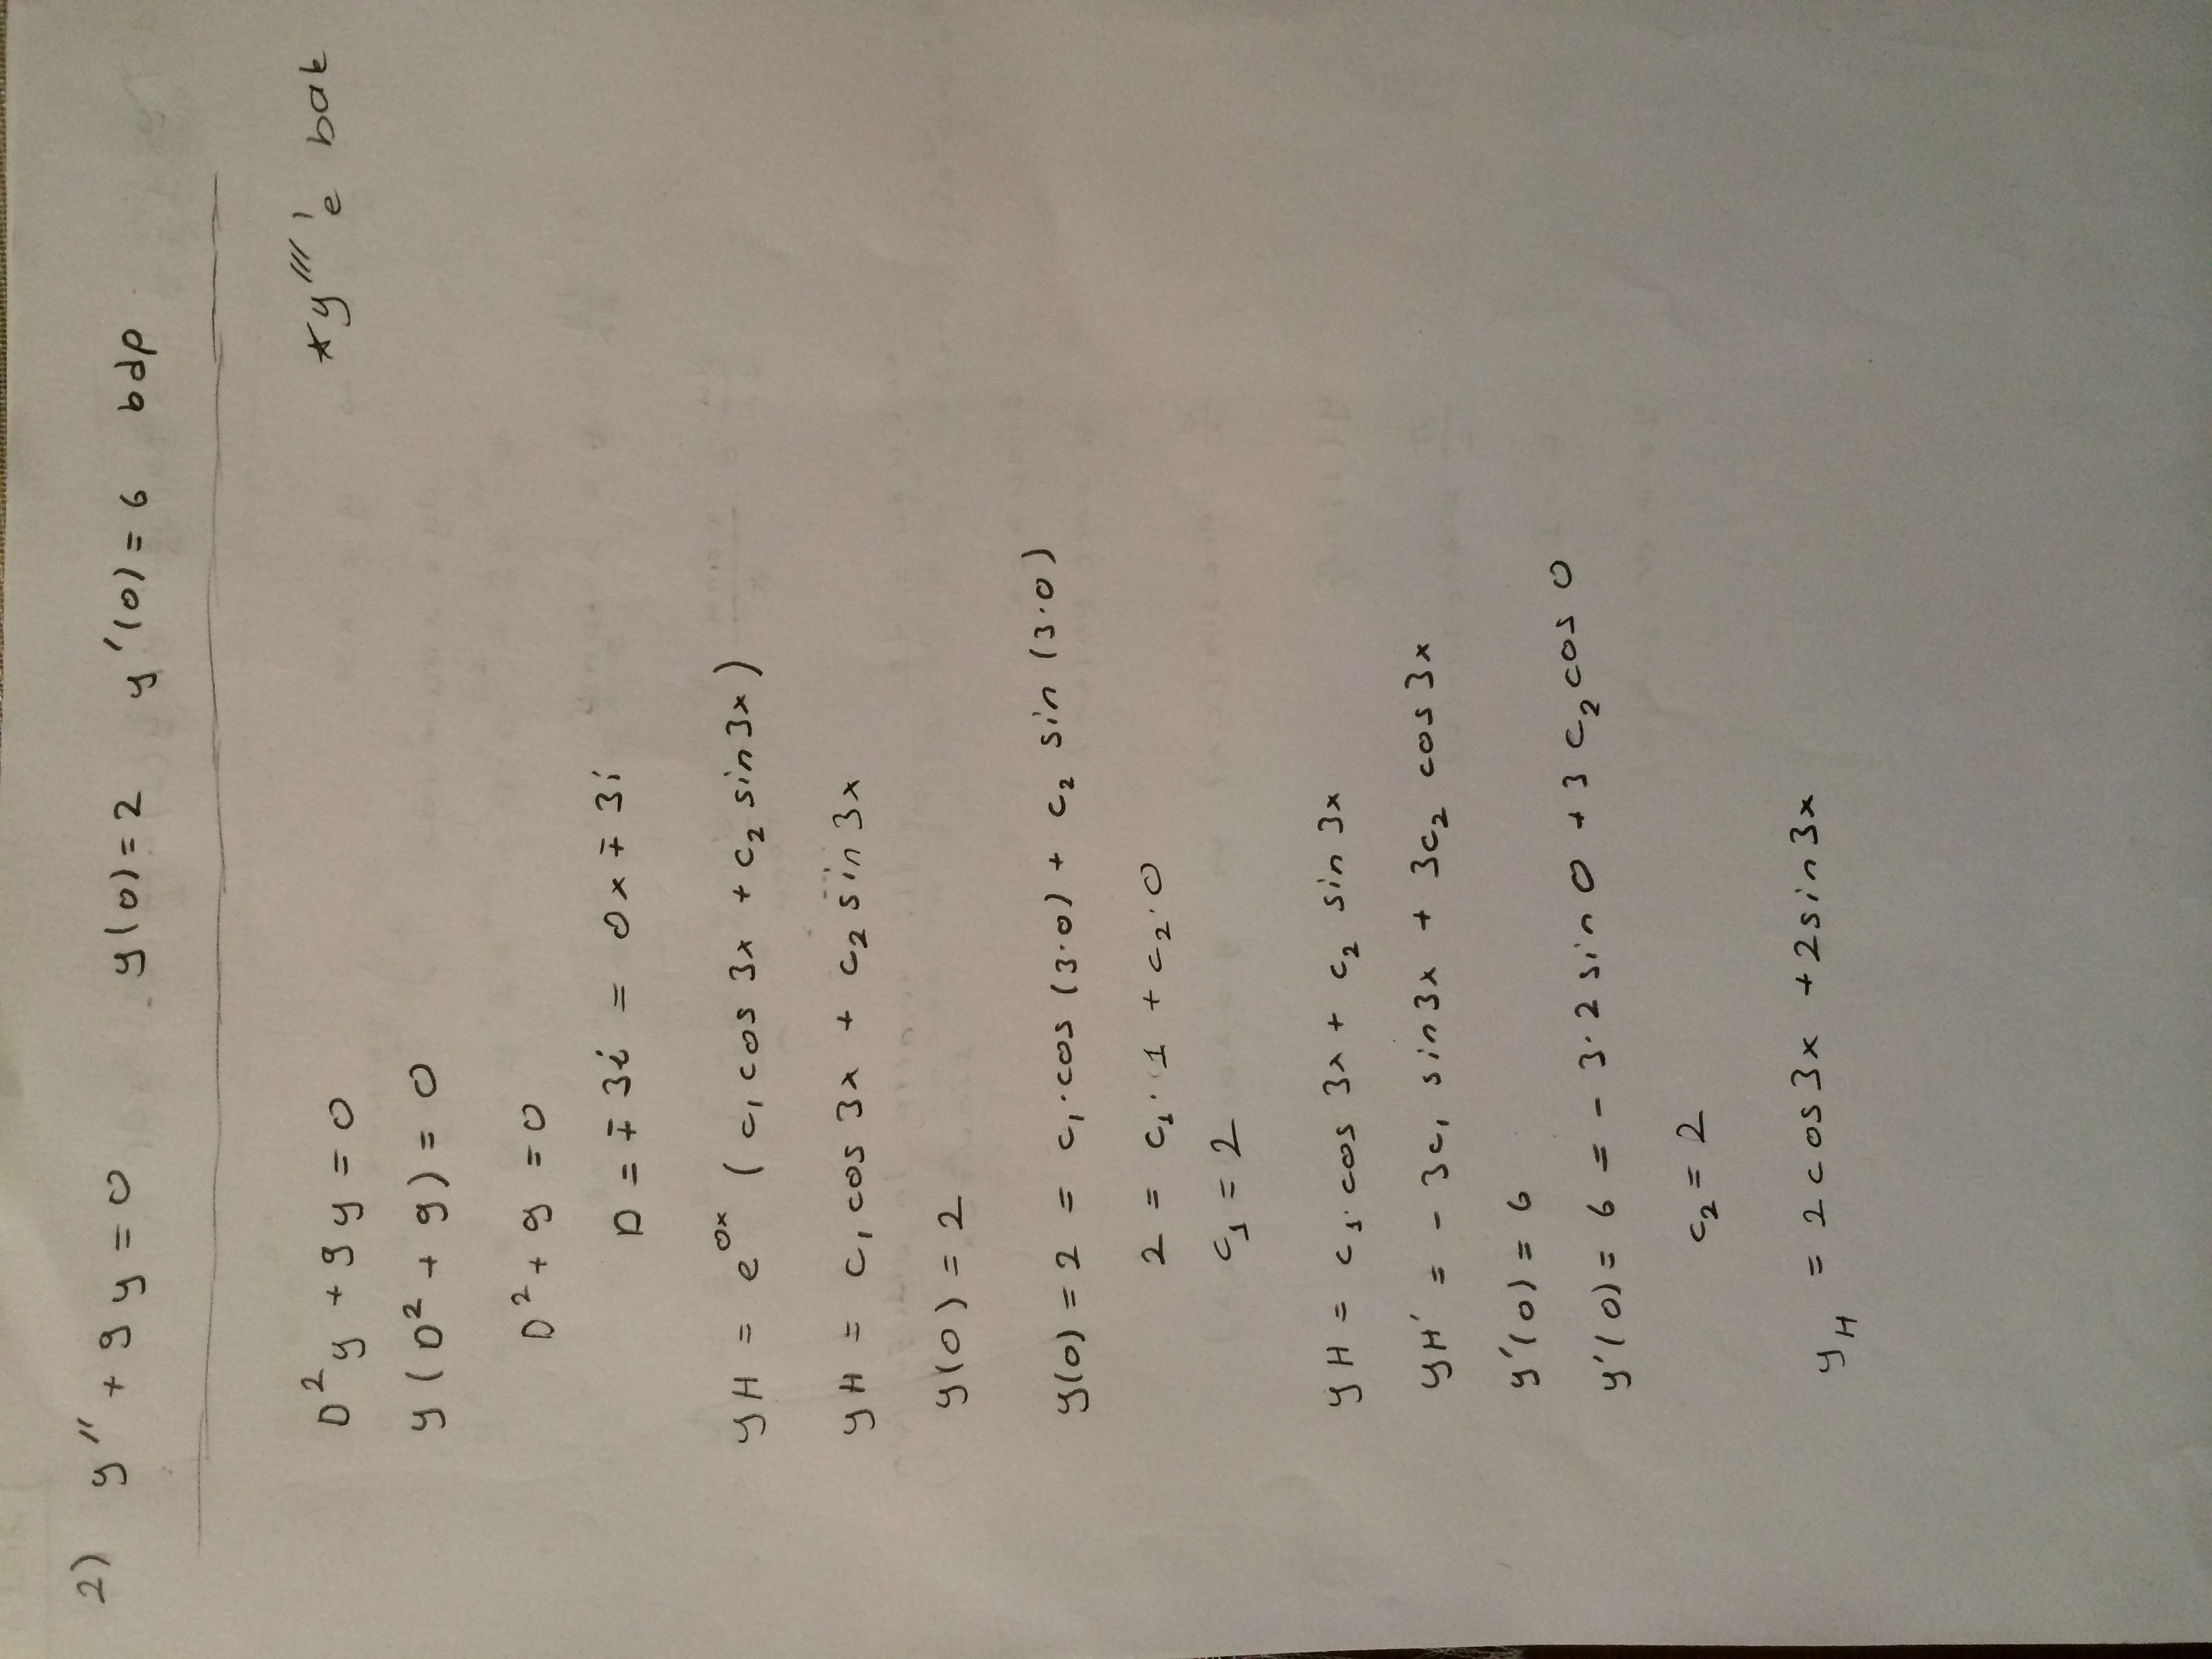 2) y'' + 9y = 0 y(0) = 2 y'(0) = 6 bdp
*y''''e bak
D²y + 9y = 0
y(D² + 9) = 0
D² + 9 = 0
D = ∓3i = 0x ∓ 3i
yH = e^0x (c₁ cos 3x + c₂ sin 3x)
yH = c₁ cos 3x + c₂ sin 3x
y(0) = 2
y(0) = 2 = c₁·cos (3·0) + c₂ sin (3·0)
2 = c₁·1 + c₂·0
c₁ = 2
yH = c₁·cos 3x + c₂ sin 3x
yH' = -3c₁ sin3x + 3c₂ cos 3x
y'(0) = 6
y'(0) = 6 = -3·2 sin 0 + 3 c₂ cos 0
c₂ = 2
y_H = 2cos3x + 2sin3x